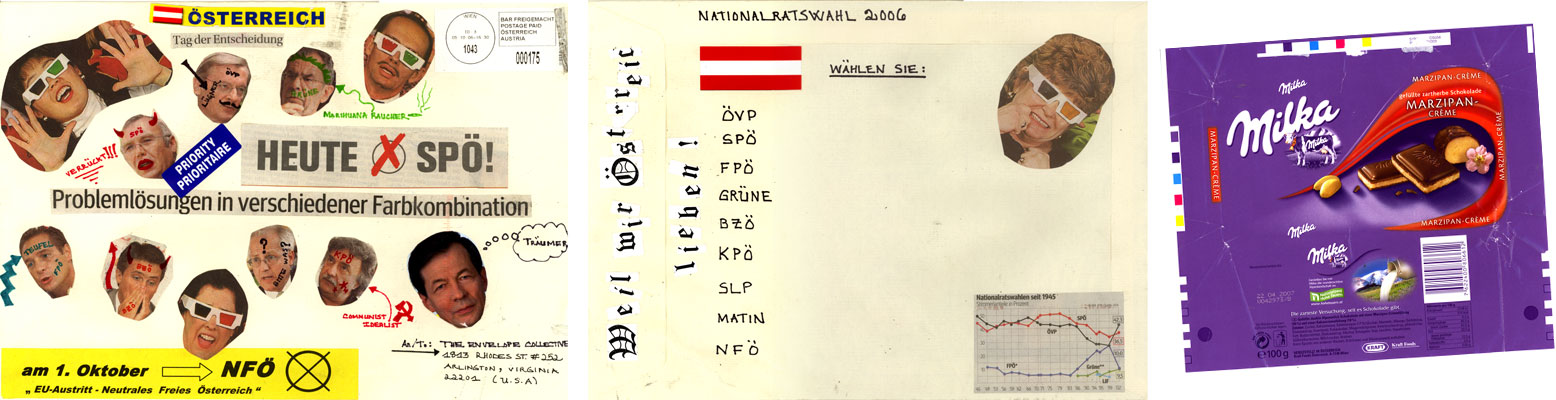 ÖSTERREICH
Tag der Entscheidung
WIEN
1043
BAR FREIGEMACHT
POSTAGE PAID
ÖSTERREICH
AUSTRIA
000175
ÖVP
GRÜNE
MARIHUANA RAUCHER
SPÖ
VERRÜCKT!!!
PRIORITY
PRIORITAIRE
HEUTE X SPÖ!
Problemlösungen in verschiedener Farbkombination
TEUFEL
FPÖ
BZÖ
?
BITTE WAS?
KPÖ
TRÄUMER
COMMUNIST
IDEALIST
An/To: THE ENVELOPE COLLECTIVE
1813 RHODES ST. #252
ARLINGTON, VIRGINIA
22201 (U.S.A)
am 1. Oktober NFÖ
„EU-Austritt - Neutrales Freies Österreich“
NATIONALRATSWAHL 2006
Weil wir Österreich
lieben!
WÄHLEN SIE:
ÖVP
SPÖ
FPÖ
GRÜNE
BZÖ
KPÖ
SLP
MATIN
NFÖ
Nationalratswahlen seit 1945
Stimmenanteile in Prozent
SPÖ
ÖVP
FPÖ*
Grüne**
LIF
Milka
MARZIPAN-CRÈME
gefüllte zartherbe Schokolade
MARZIPAN-
CRÈME
Milka
MARZIPAN-CRÈME
MARZIPAN-CRÈME
MARZIPAN-CRÈME
Milka
Milka
22.04.2007
Die zarteste Versuchung, seit es Schokolade gibt.
e 100 g
KRAFT Kraft Foods